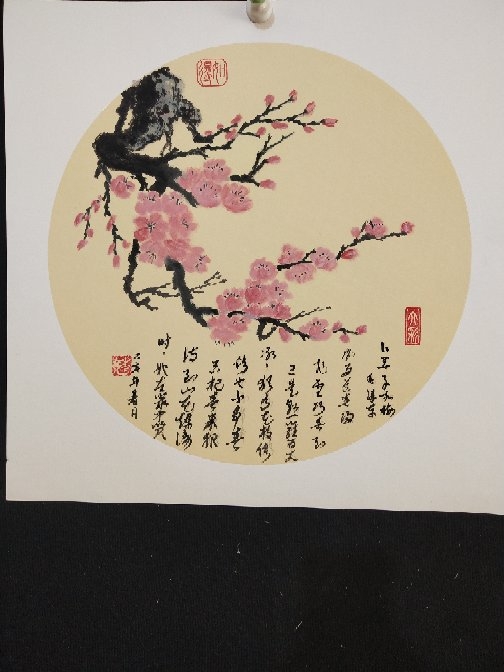 卜算子咏梅
毛泽东
风雨送春归
飞雪迎春到
已是悬崖百丈
冰，犹有花枝俏
俏也不争春
只把春来报
待到山花烂漫
时，她在丛中笑
己亥年月